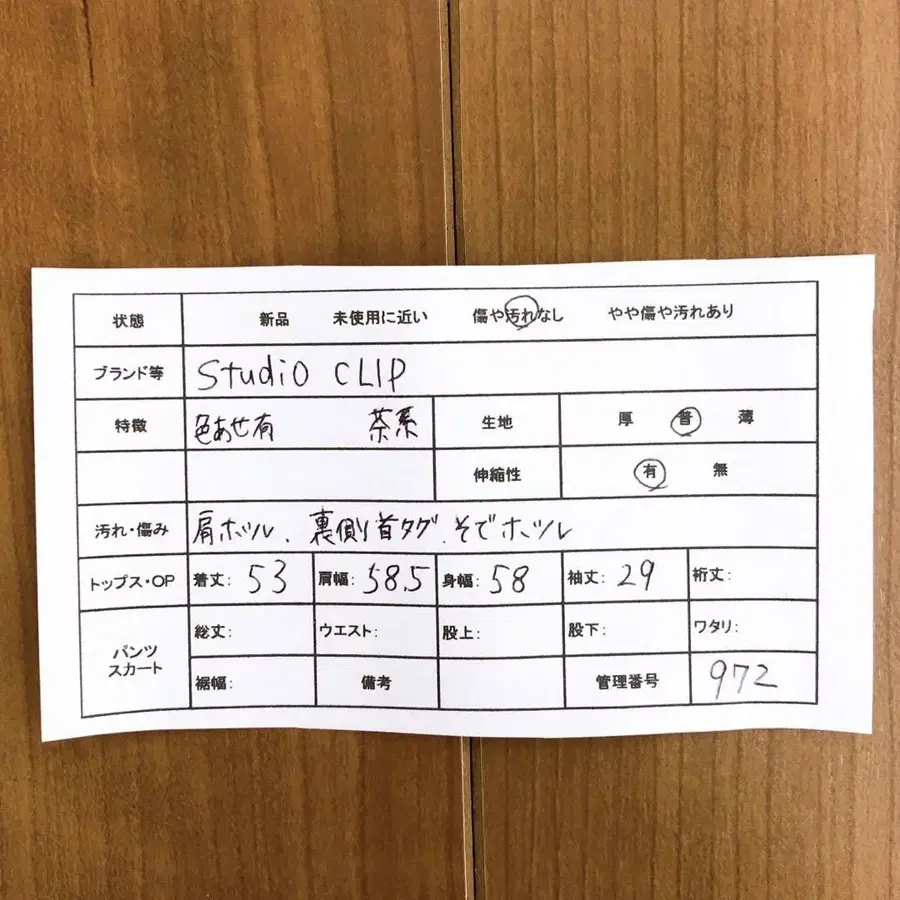 状態 新品 未使用に近い 傷や汚れなし やや傷や汚れあり
ブランド等 studio CLIP
特徴 色あせ有 茶系 生地 厚 普 薄
伸縮性 有 無
汚れ・傷み 肩ホツレ、裏側首タグ、そでホツレ
トップス・OP 着丈: 53 肩幅: 58.5 身幅: 58 袖丈: 29 裄丈:
パンツ スカート 総丈: ウエスト: 股上: 股下: ワタリ:
裾幅: 備考 管理番号 972